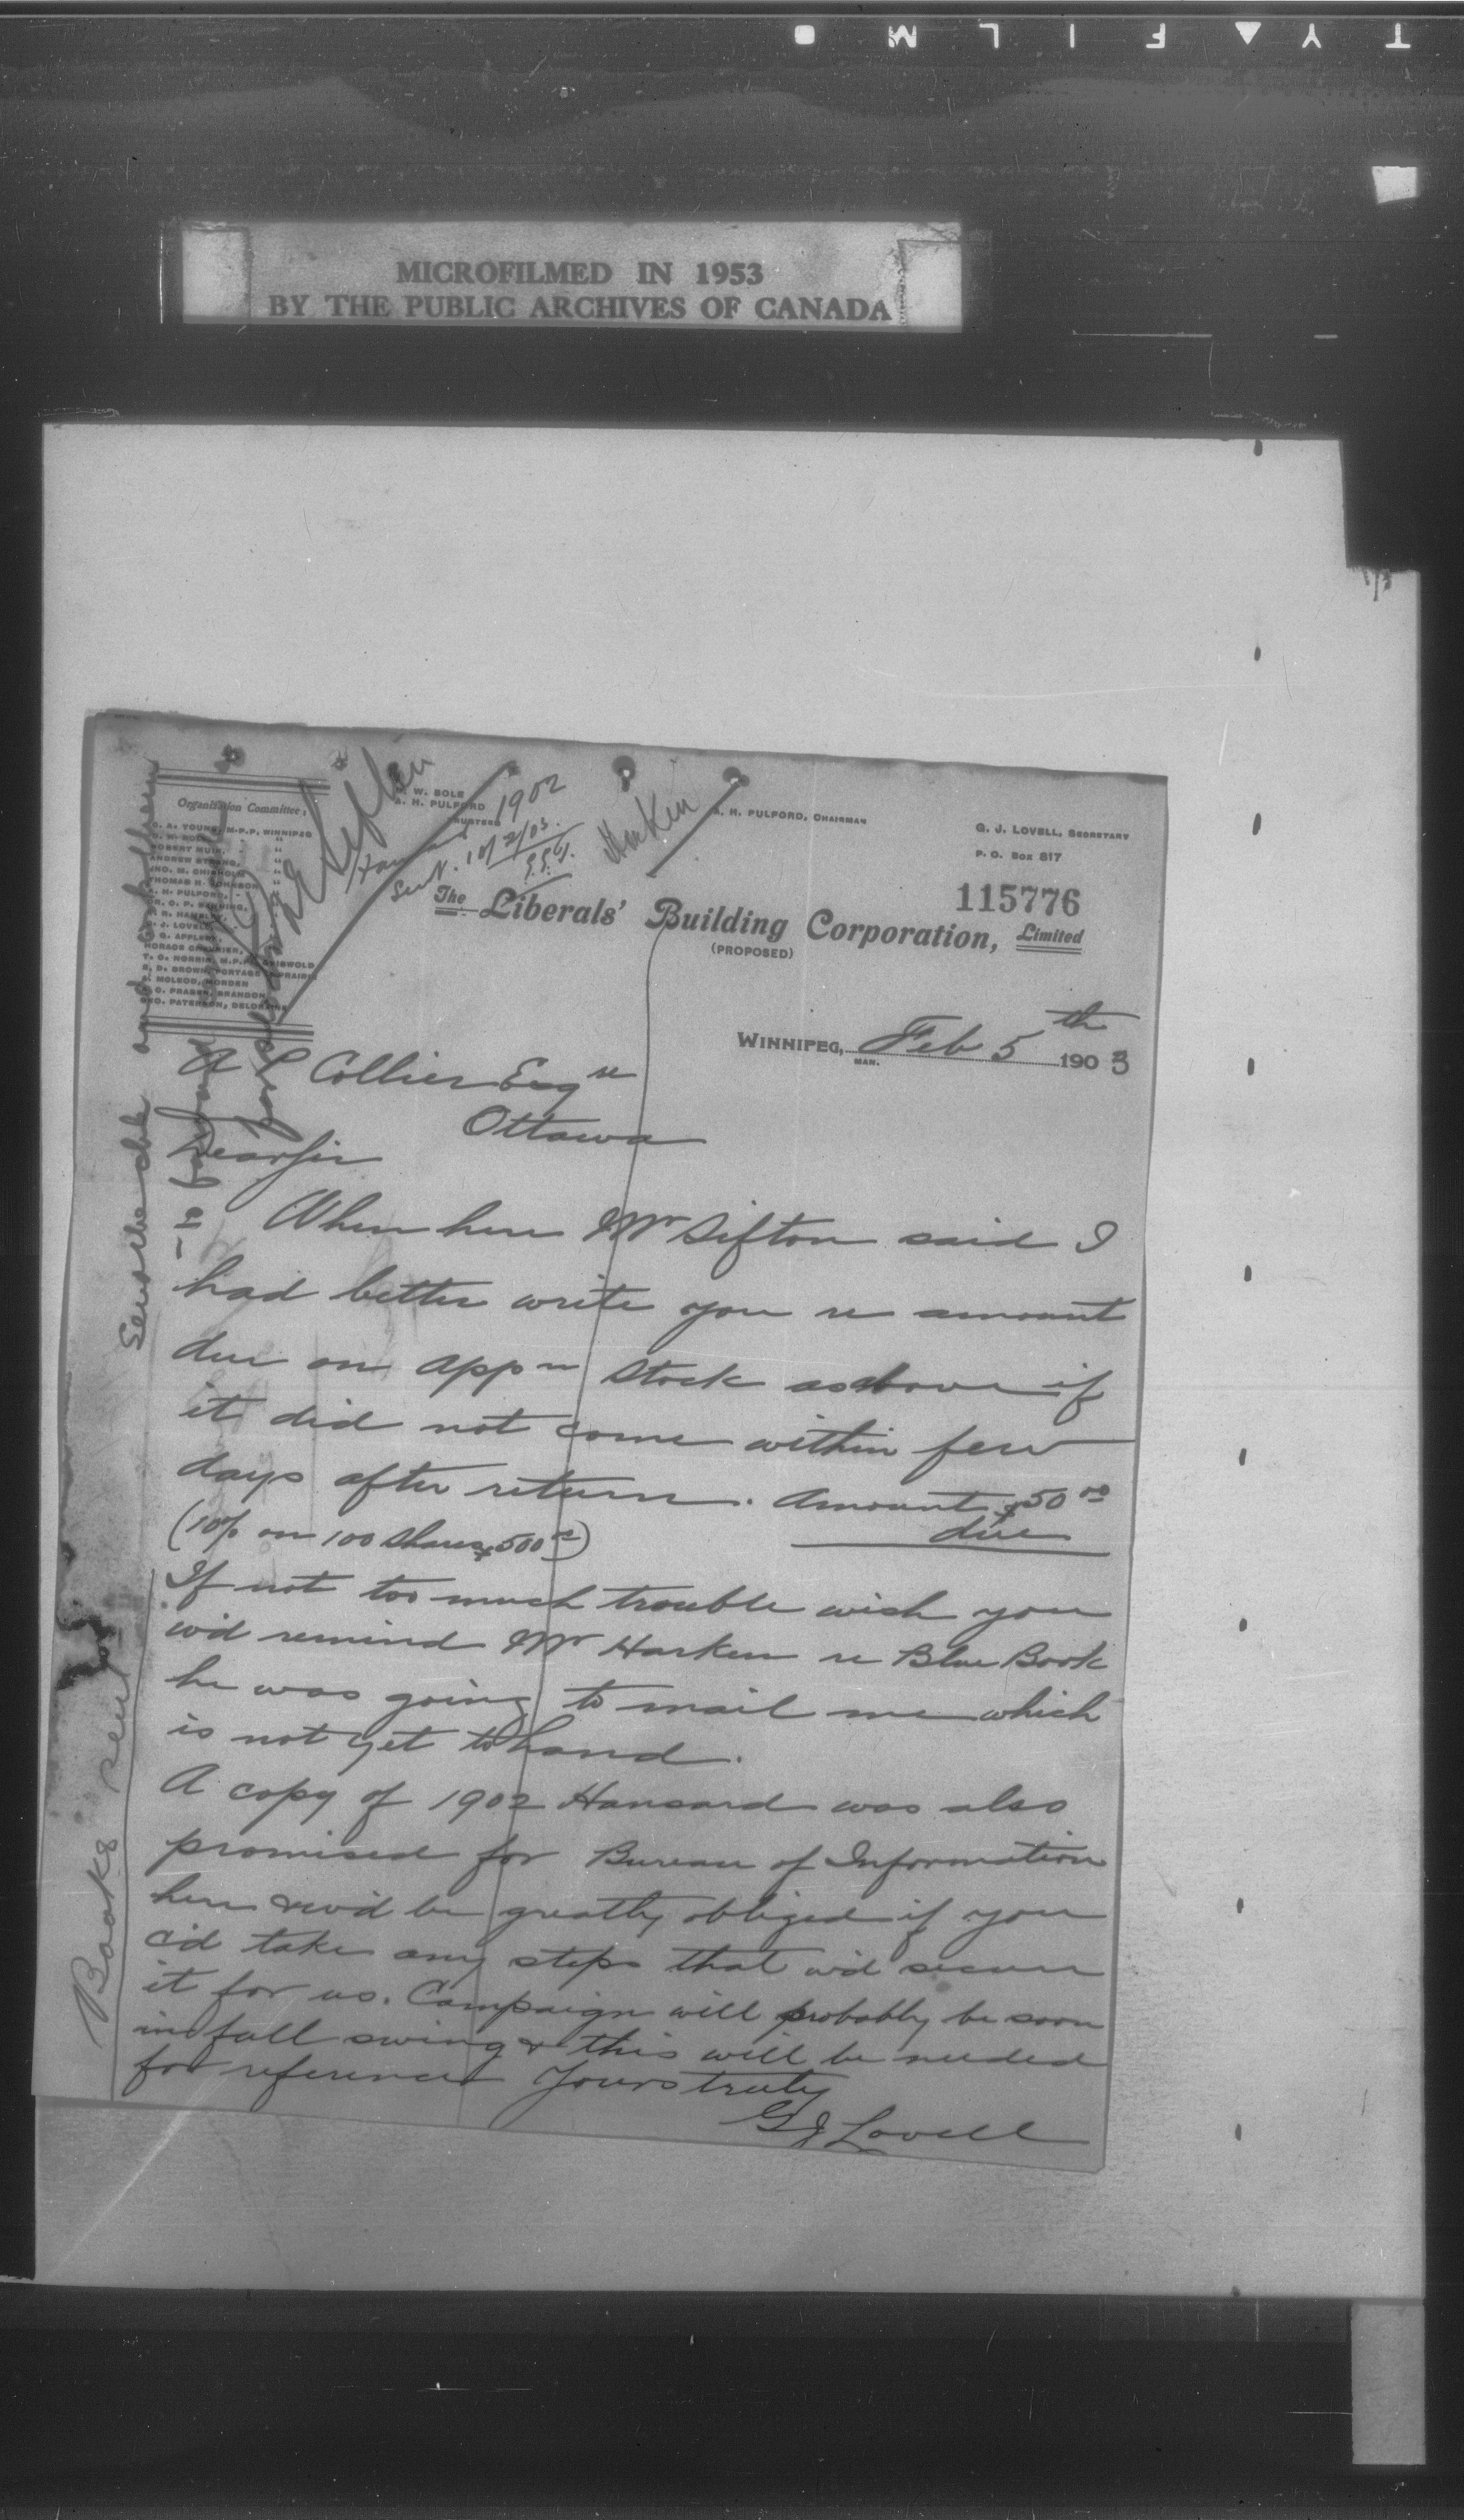 TYAFILM
MICROFILMED IN 1953
BY THE PUBLIC ARCHIVES OF CANADA
Organization Committee:
G. A. YOUNG, M.P.P. WINNIPEG
D. W. BOLE, "
ROBERT MUIR, "
ANDREW STRANG, "
JNO. M. CHISHOLM "
THOMAS H. JOHNSON "
A. H. PULFORD, "
R. HAMBLEY,
G. J. LOVELL,
APPLEBY,
HORACE CHEVRIER,
T. C. NORRIS, M.P.P. GRISWOLD
E. D. BROWN, PORTAGE PRAIRIE
McLEOD, MORDEN
C. FRASER, BRANDON
GEO. PATERSON, DELORAINE
W. BOLE
A. H. PULFORD
TRUSTEES
Hansard 1902
Sent. 10/2/03.
Harkin
Sifton
A. H. PULFORD, CHAIRMAN
G. J. LOVELL, SECRETARY
P. O. Box 817
115776
The Liberals' Building Corporation, Limited
(PROPOSED)
WINNIPEG, MAN. Feb 5th 1903
A P Collier Esqre
Ottawa
Dear Sir
When here Mr Sifton said I
had better write you re amount
due on appn stock as above if
it did not come within few
days after return. Amount $50 00
due
(10% on 100 shares $500 00)
If not too much trouble wish you
wd remind Mr Harken re Blue Book
he was going to mail me which
is not yet to hand.
A copy of 1902 Hansard was also
promised for Bureau of Information
here & wd be greatly obliged if you
cd take any steps that wd secure
it for us. Campaign will probably be soon
in full swing & this will be needed
for reference Yours truly
G J Lovell
Books sent